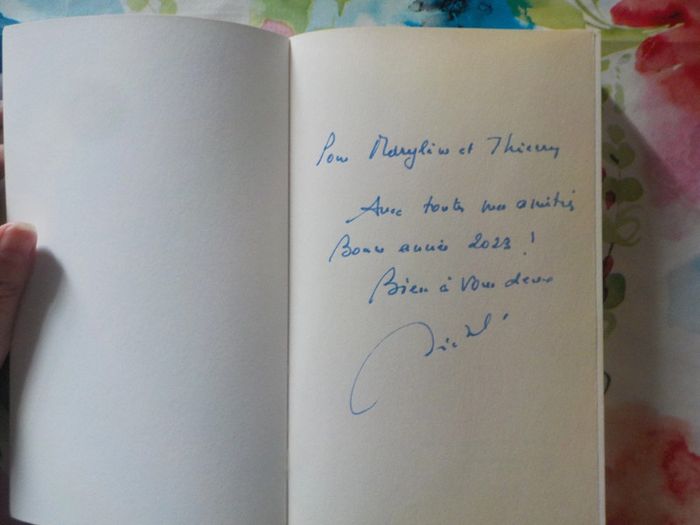 Pour Maryline et Thierry
Avec toutes mes amitiés
Bonne année 2023 !
Bien à vous deux